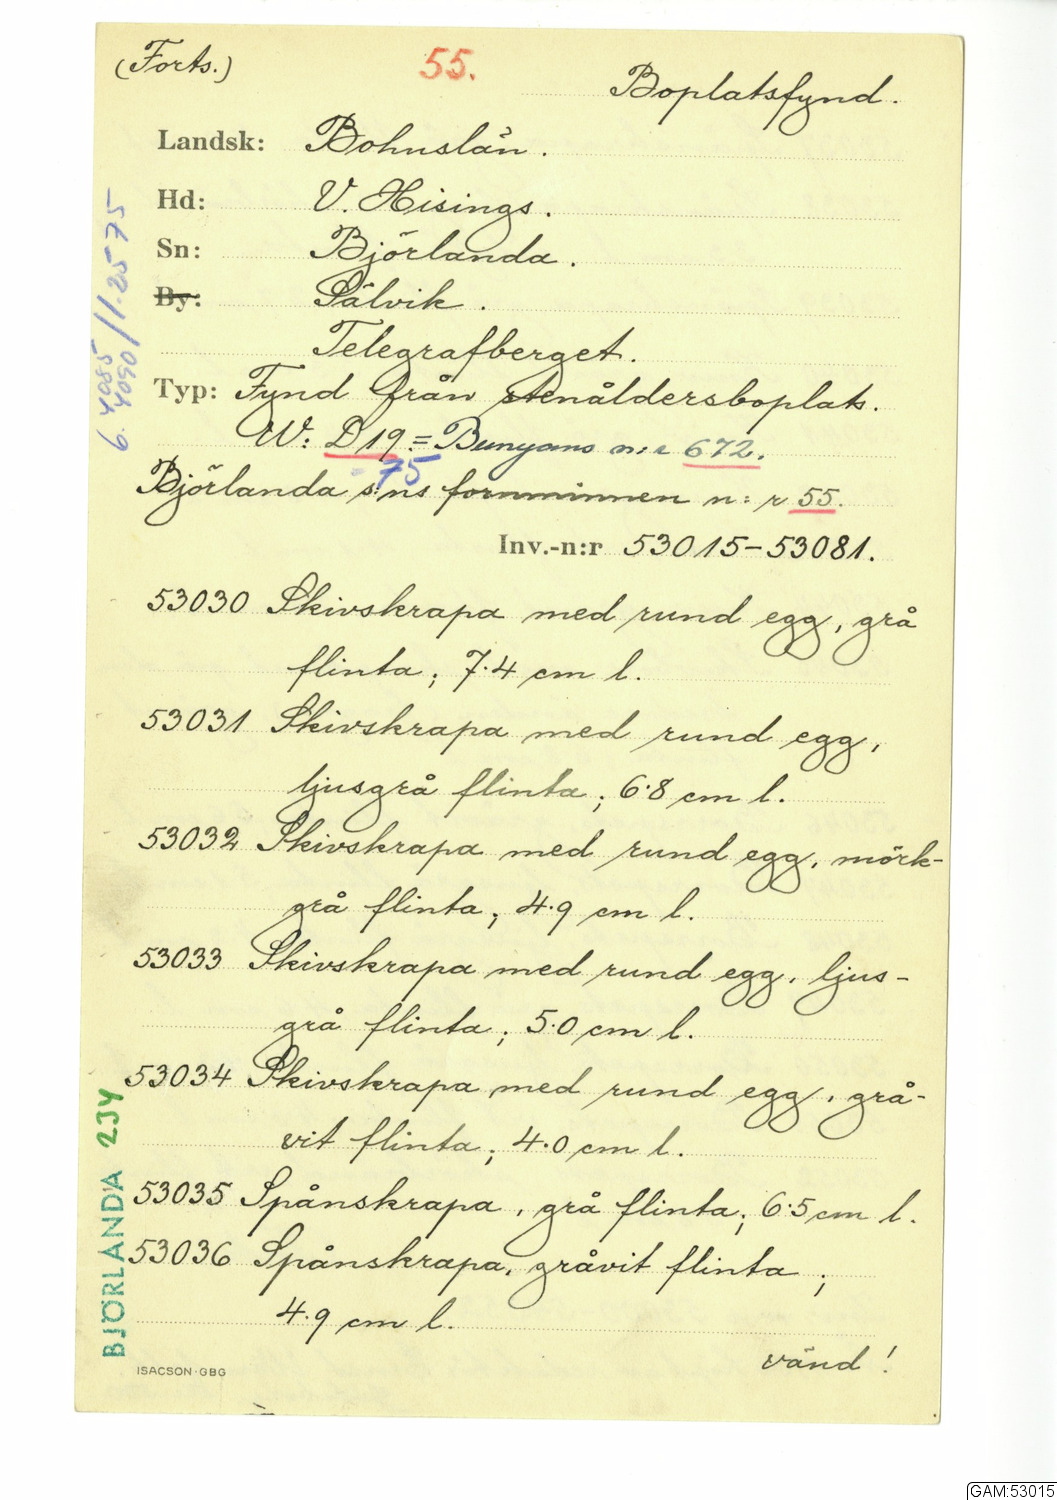 (Forts.)
55.
Boplatsfynd.
Landsk: Bohuslän.
Hd: V. Hisings.
Sn: Björlanda.
By: Sälvik.
Telegrafberget.
Typ: Fynd från stenåldersboplats.
W: D 19 = Bunyans n:r 672.
75
Björlanda s:ns fornminnen n:r 55.
Inv.-n:r 53015-53081.
53030 Skivskrapa med rund egg, grå
flinta; 7.4 cm l.
53031 Skivskrapa med rund egg,
ljusgrå flinta; 6.8 cm l.
53032 Skivskrapa med rund egg, mörk-
grå flinta; 4.9 cm l.
53033 Skivskrapa med rund egg, ljus-
grå flinta; 5.0 cm l.
53034 Skivskrapa med rund egg, grå-
vit flinta; 4.0 cm l.
53035 Spånskrapa, grå flinta; 6.5 cm l.
53036 Spånskrapa, gråvit flinta;
4.9 cm l.
vänd!
ISACSON·GBG
BJÖRLANDA 234
6. 4085/1.2575
4090
GAM:53015